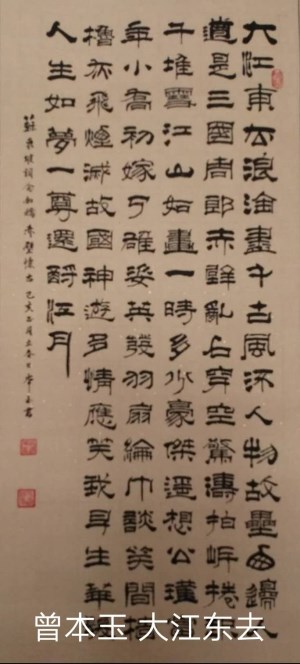 大江東去浪淘盡千古風流人物故壘西邊人
道是三國周郎赤壁亂石穿空驚濤拍岸捲起
千堆雪江山如畫一時多少豪傑遥想公瑾當
年小喬初嫁了雄姿英發羽扇綸巾談笑間檣
櫓灰飛煙滅故國神遊多情應笑我早生華髮
人生如夢一尊還酹江月
蘇東坡詞念奴嬌赤壁懷古己亥正月立春日本玉書
曾本玉 大江东去